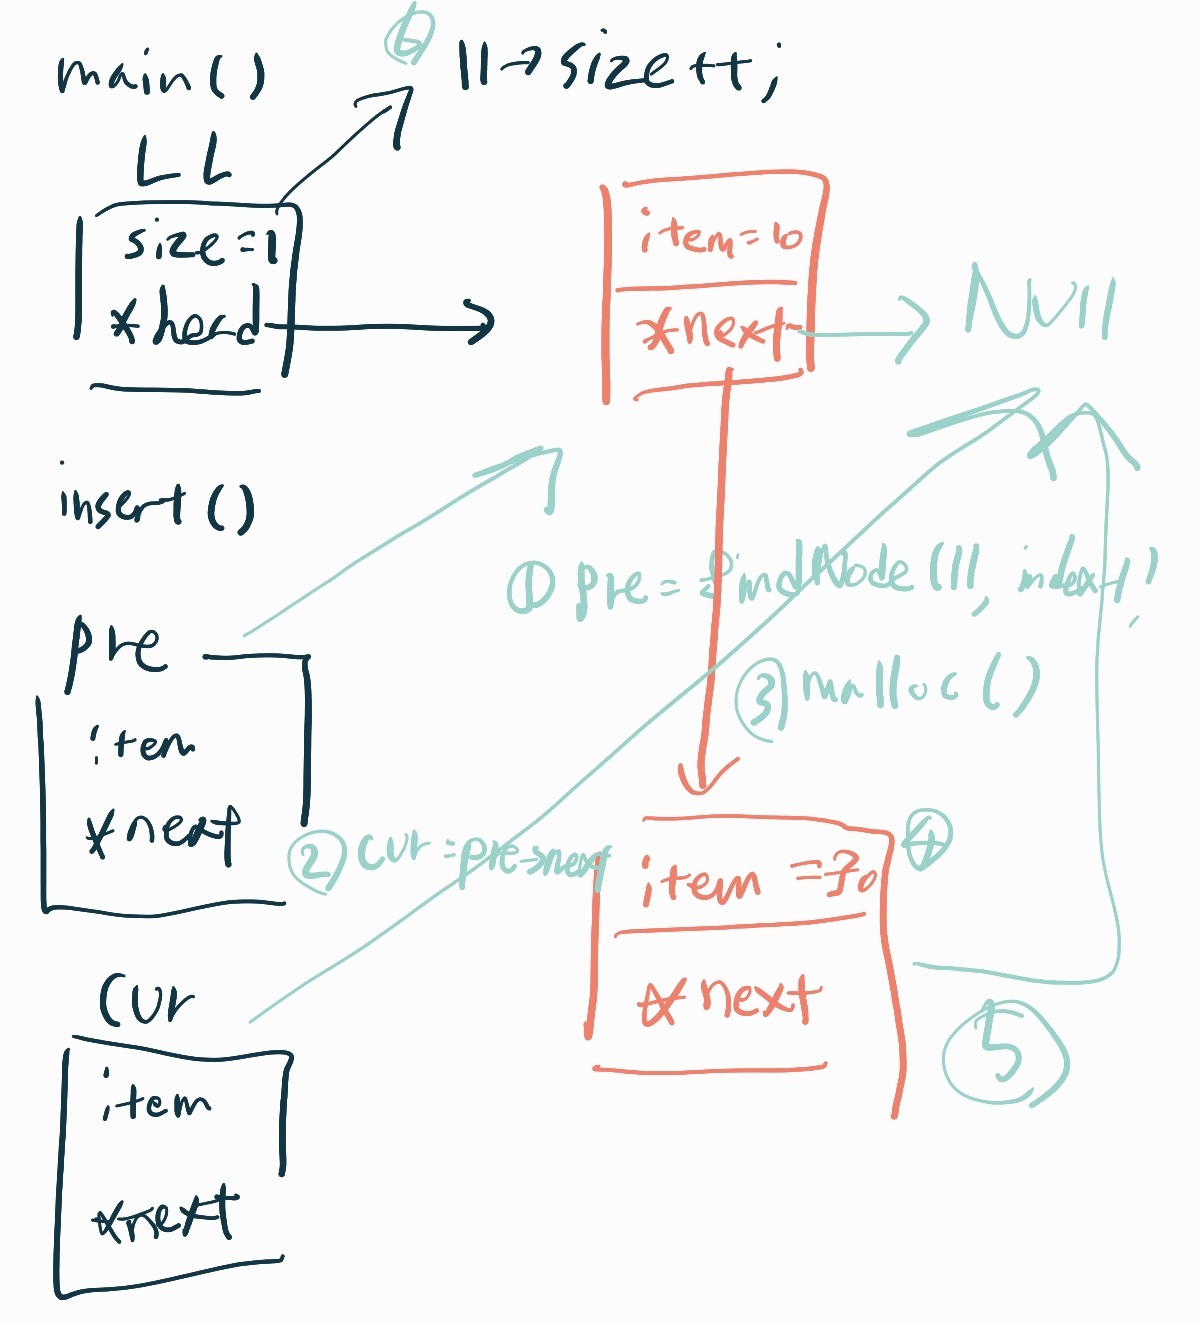 main()
⑥ ll→size++;
LL
size=1
*head
item=10
*next
Null
insert()
① pre = findNode(ll, index-1)
pre
item
*next
③ malloc()
② cur=pre→next
④
item =30
*next
cur
item
*next
⑤